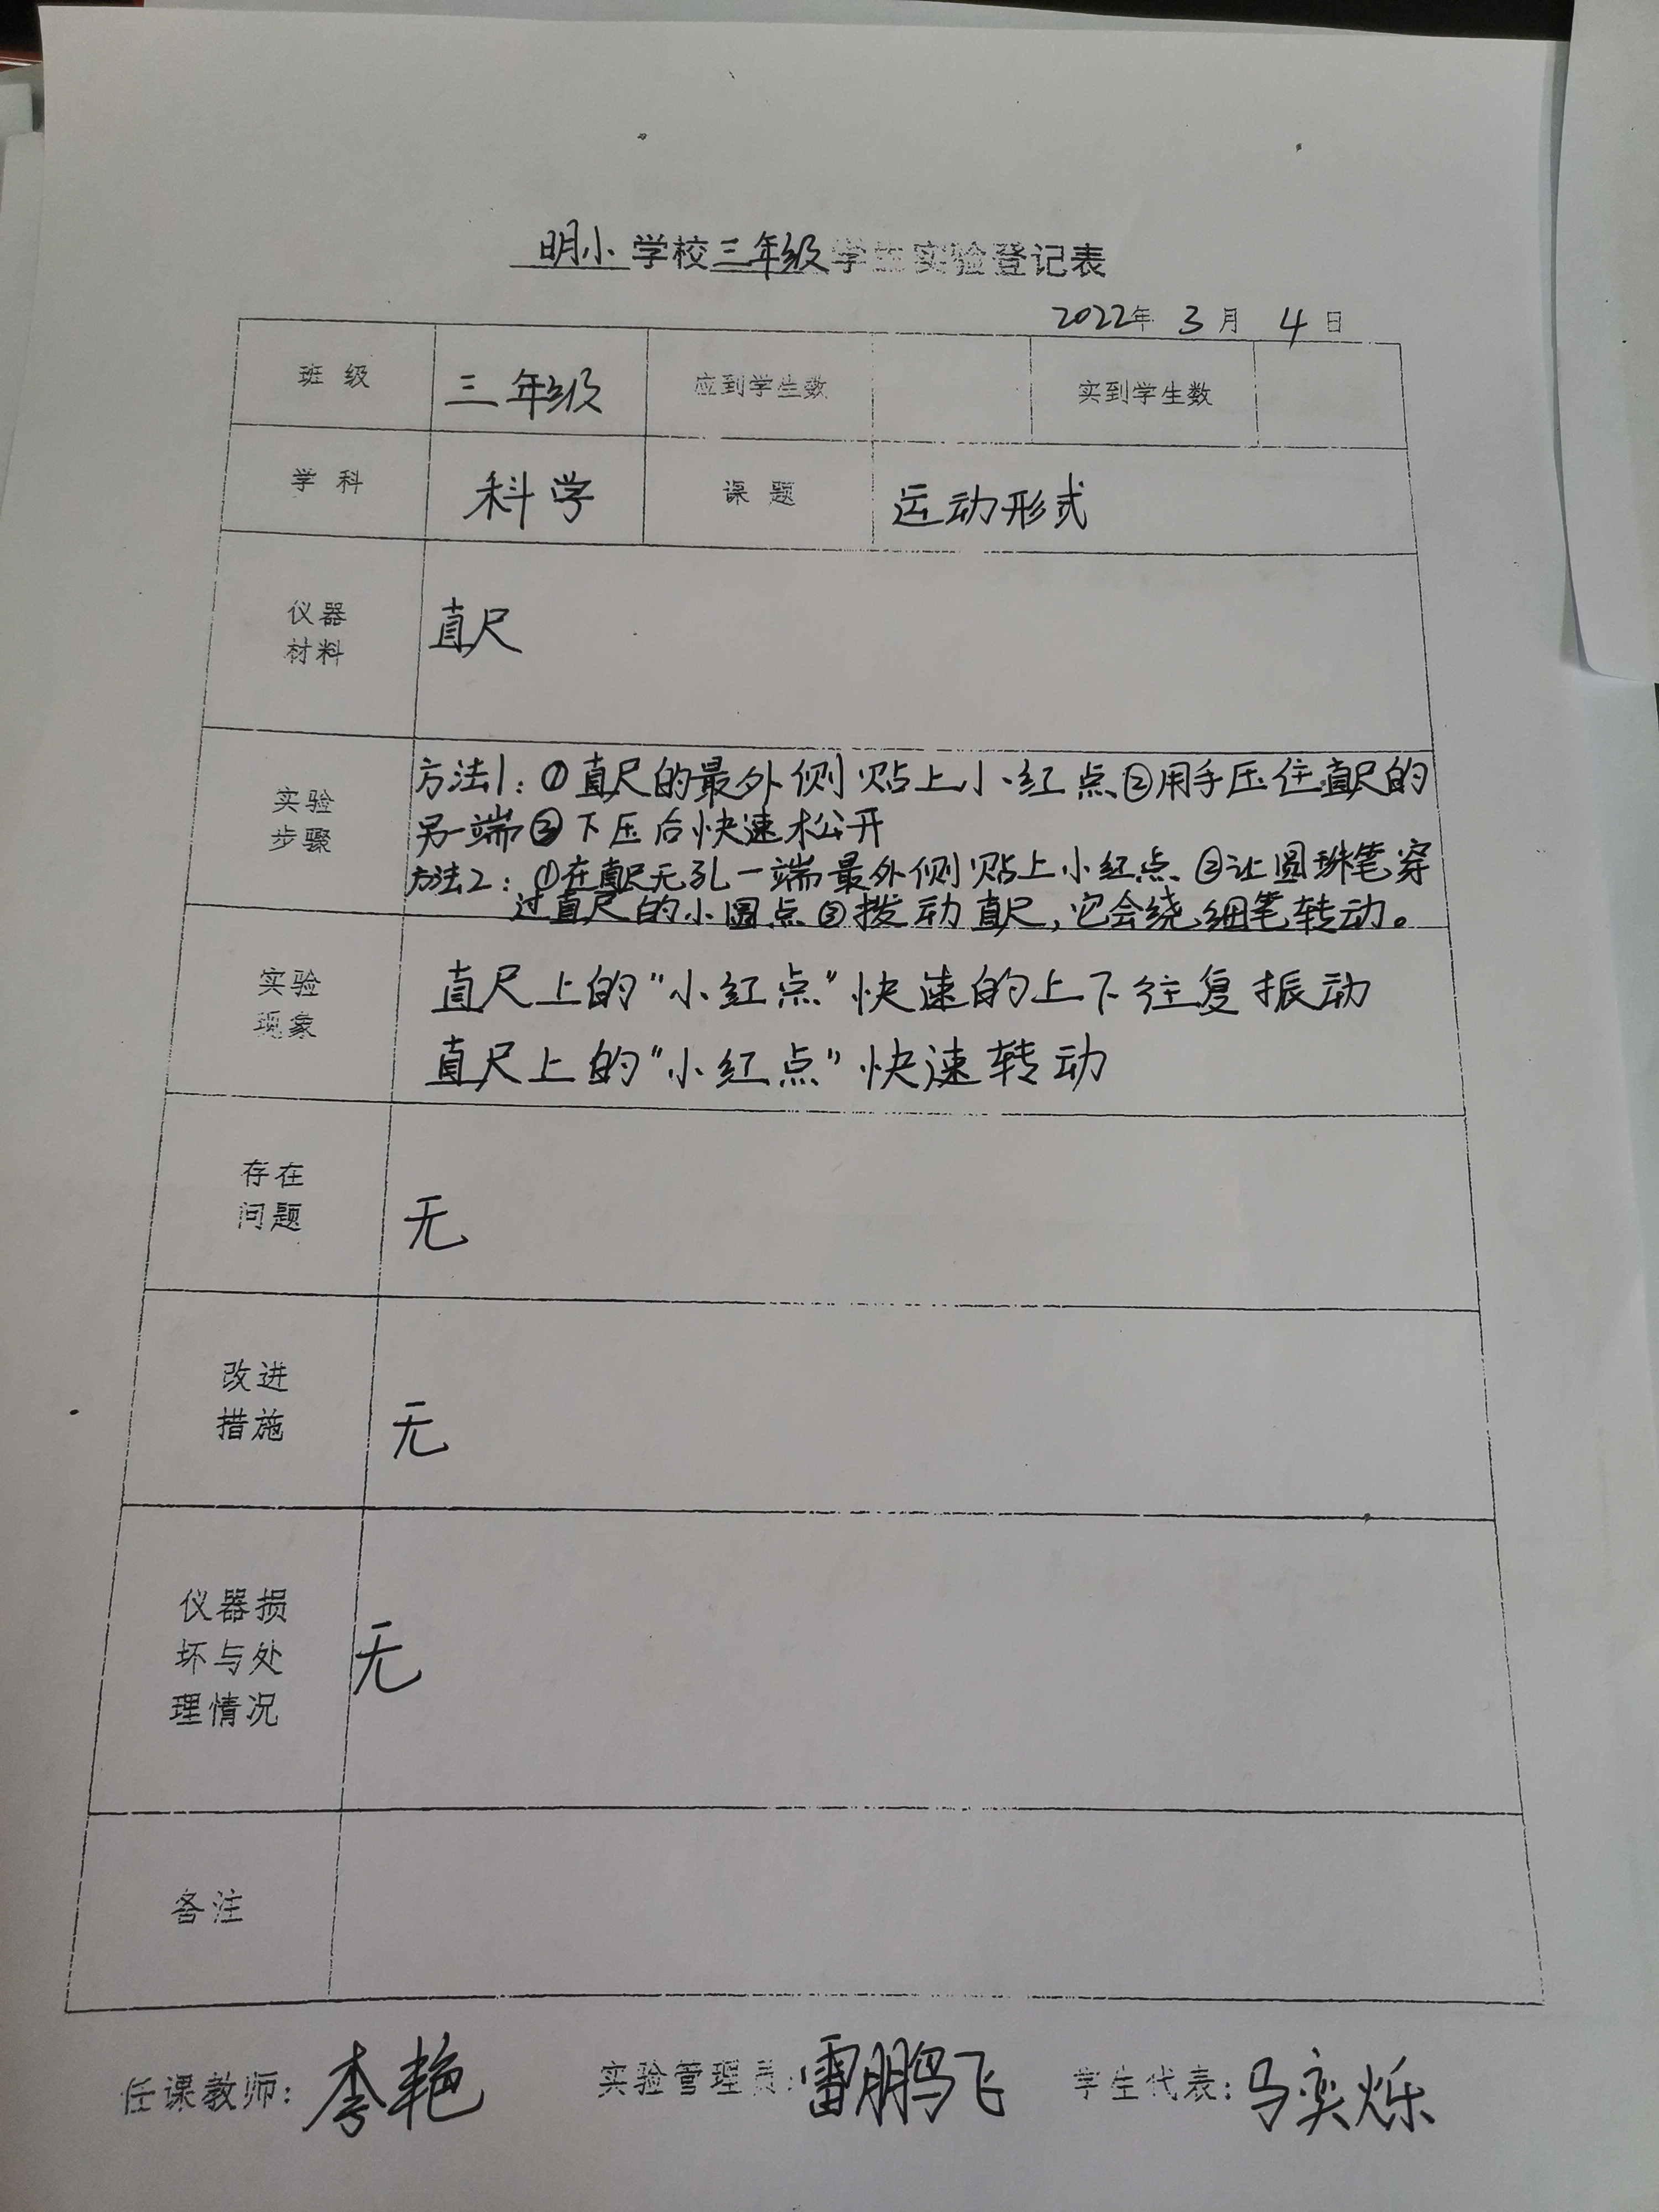 明小学校三年级学生实验登记表
2022年 3月 4日
班 级 三年级 应到学生数 实到学生数
学 科 科学 课 题 运动形式
仪器
材料
直尺
实验
步骤
方法1:①直尺的最外侧贴上小红点②用手压住直尺的
另一端③下压后快速松开
方法2:①在直尺无孔一端最外侧贴上小红点②让圆珠笔穿
过直尺的小圆点③拨动直尺,它会绕细笔转动。
实验
现象
直尺上的“小红点”快速的上下往复振动
直尺上的“小红点”快速转动
存在
问题
无
改进
措施
无
仪器损
坏与处
理情况
无
备注
任课教师:李艳 实验管理员:雷鹏飞 学生代表:马奕烁